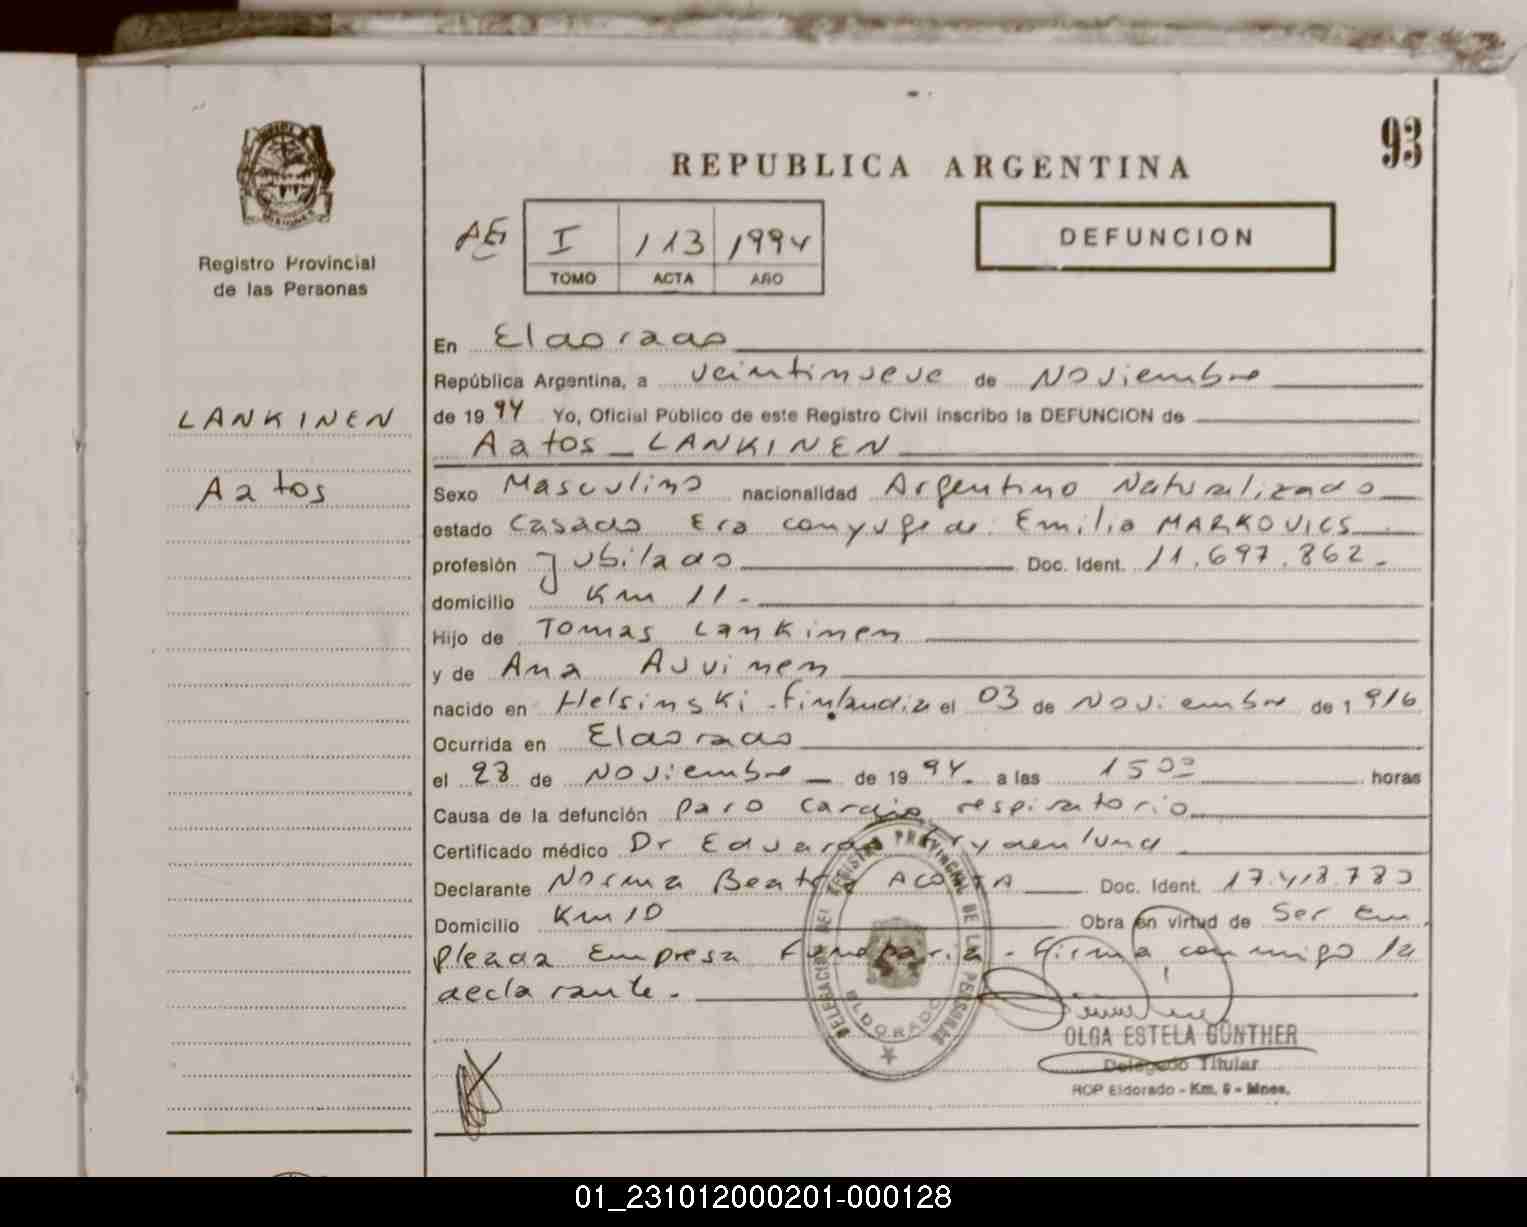 93
REPUBLICA ARGENTINA
DEFUNCION
I 113 1994
TOMO ACTA AÑO
Registro Provincial
de las Personas
LANKINEN
Aatos
En Eldorado
República Argentina, a veintinueve de Noviembre
de 1994 Yo, Oficial Público de este Registro Civil inscribo la DEFUNCION de
Aatos LANKINEN
Sexo Masculino nacionalidad Argentino Naturalizado
estado Casado Era conyuge de Emilia MARKOVICS
profesión Jubilado Doc. Ident. 11.697.862.-
domicilio Km 11.-
Hijo de Tomas Lankinen
y de Ana Auvinen
nacido en Helsinski - Finlandia el 03 de Noviembre de 1916
Ocurrida en Eldorado
el 28 de Noviembre de 1994 a las 15 00 horas
Causa de la defunción paro cardio respiratorio
Certificado médico Dr Eduardo Frydenlund
Declarante Norma Beatriz ACOSTA Doc. Ident. 17.418.783
Domicilio Km 10 Obra en virtud de Ser em
pleada Empresa Funeraria - Firma conmigo la
declarante.-
DELEGACION DEL REGISTRO PROVINCIAL DE LAS PERSONAS
ELDORADO
OLGA ESTELA GÜNTHER
Delegado Titular
RCP Eldorado - Km. 9 - Mnes.
01_231012000201-000128